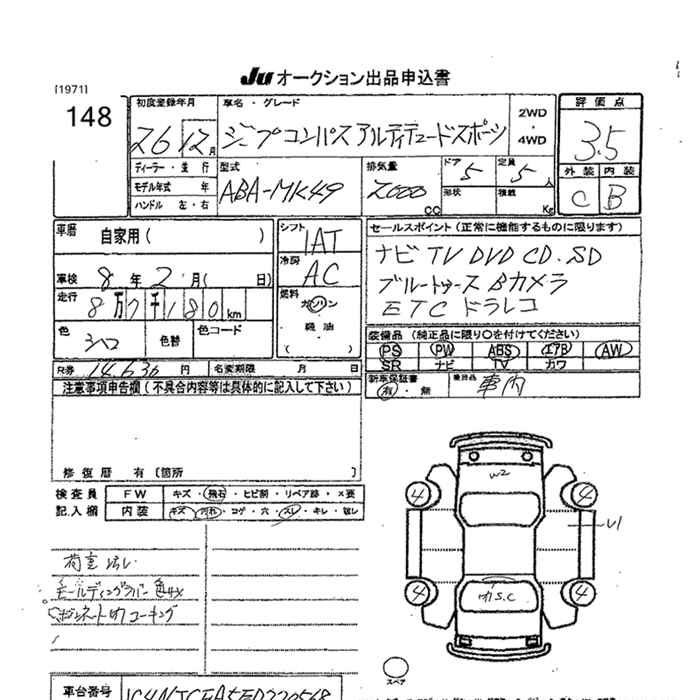 Ju オークション出品申込書
[1971]
148
初度登録年月
26 12月
車名・グレード
ジープコンパス アルティテュードスポーツ
2WD
・
4WD
評価点
3.5
外装 内装
C B
ディーラー・並行
モデル年式 年
ハンドル 左・右
型式
ABA-MK49
排気量
2000 cc
ドア 5
形状
定員 5人
積載 Kg
車歴 自家用( )
車検 8年 2月( 日)
走行 8万7千180km
色 シロ
色替
色コード
シフト
IAT
冷房
AC
燃料
ガソリン
軽油
( )
セールスポイント(正常に機能するものに限ります)
ナビ TV DVD CD.SD
ブルートゥース Bカメラ
ETC ドラレコ
装備品(純正品に限り○を付けてください)
PS PW ABS エアB AW
SR ナビ TV カワ
新車保証書
有・無
車内
R券 14,630円
名変期限 月 日
注意事項申告欄(不具合内容等は具体的に記入して下さい)
修復歴 有〔箇所 〕
検査員
記入欄
FW キズ・飛石・ヒビ割・リペア跡・×要
内装 キズ・汚れ・コゲ・穴・スレ・キレ・臭し
モールディングラバー色
コーキング
W2
U1
4 4
4 4
S.C
スペア
車台番号